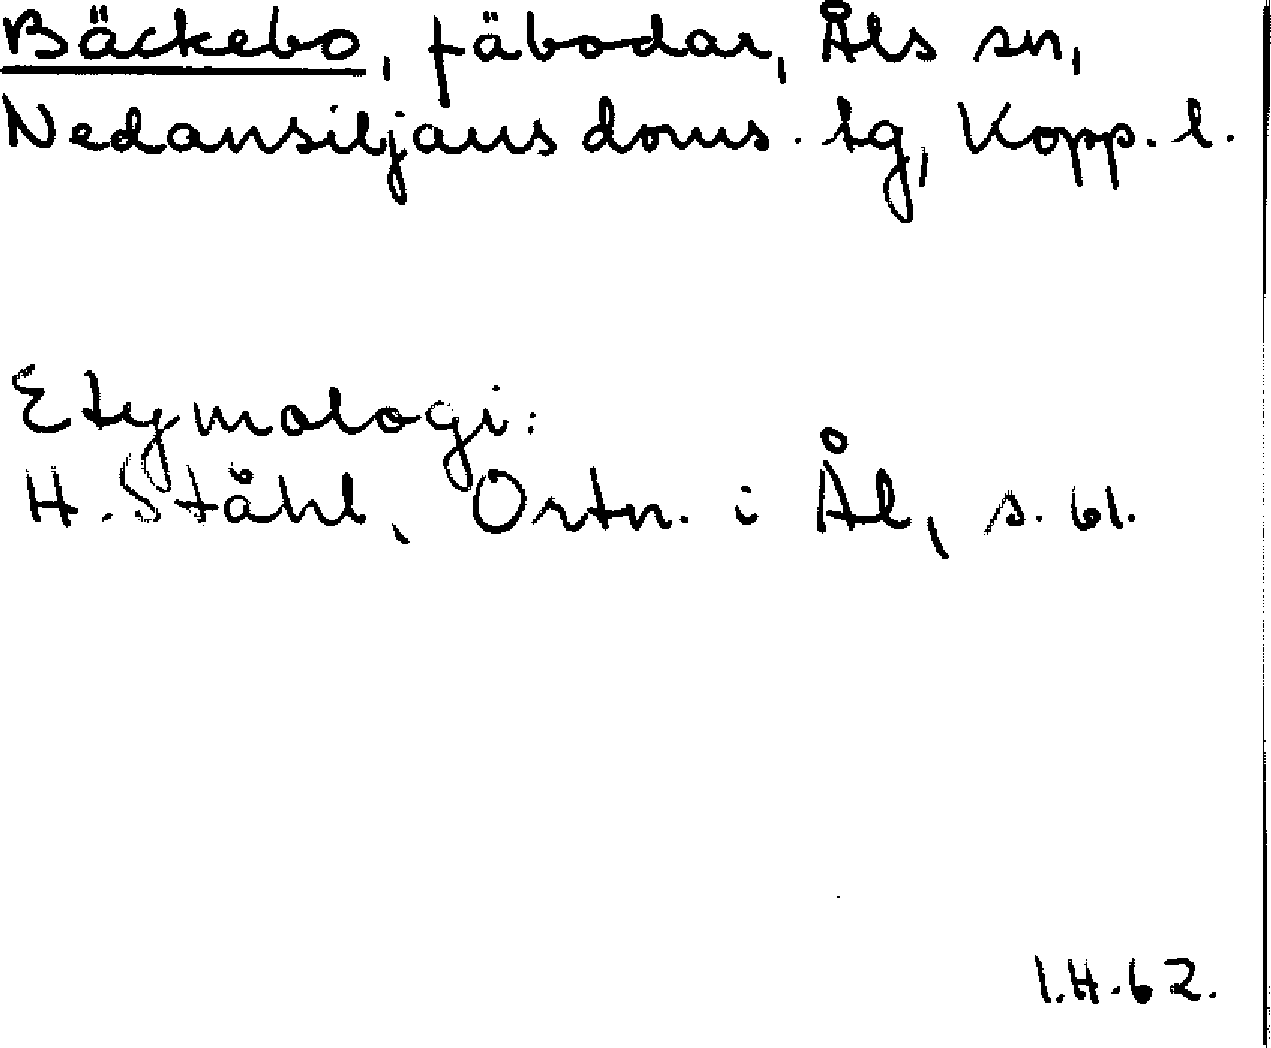 Bäckebo, fäbodar, Åls sn,
Nedansiljans doms. tg, Kopp. l.
Etymologi:
H. Ståhl, Ortn. i Ål, s. 61.
I.H.62.